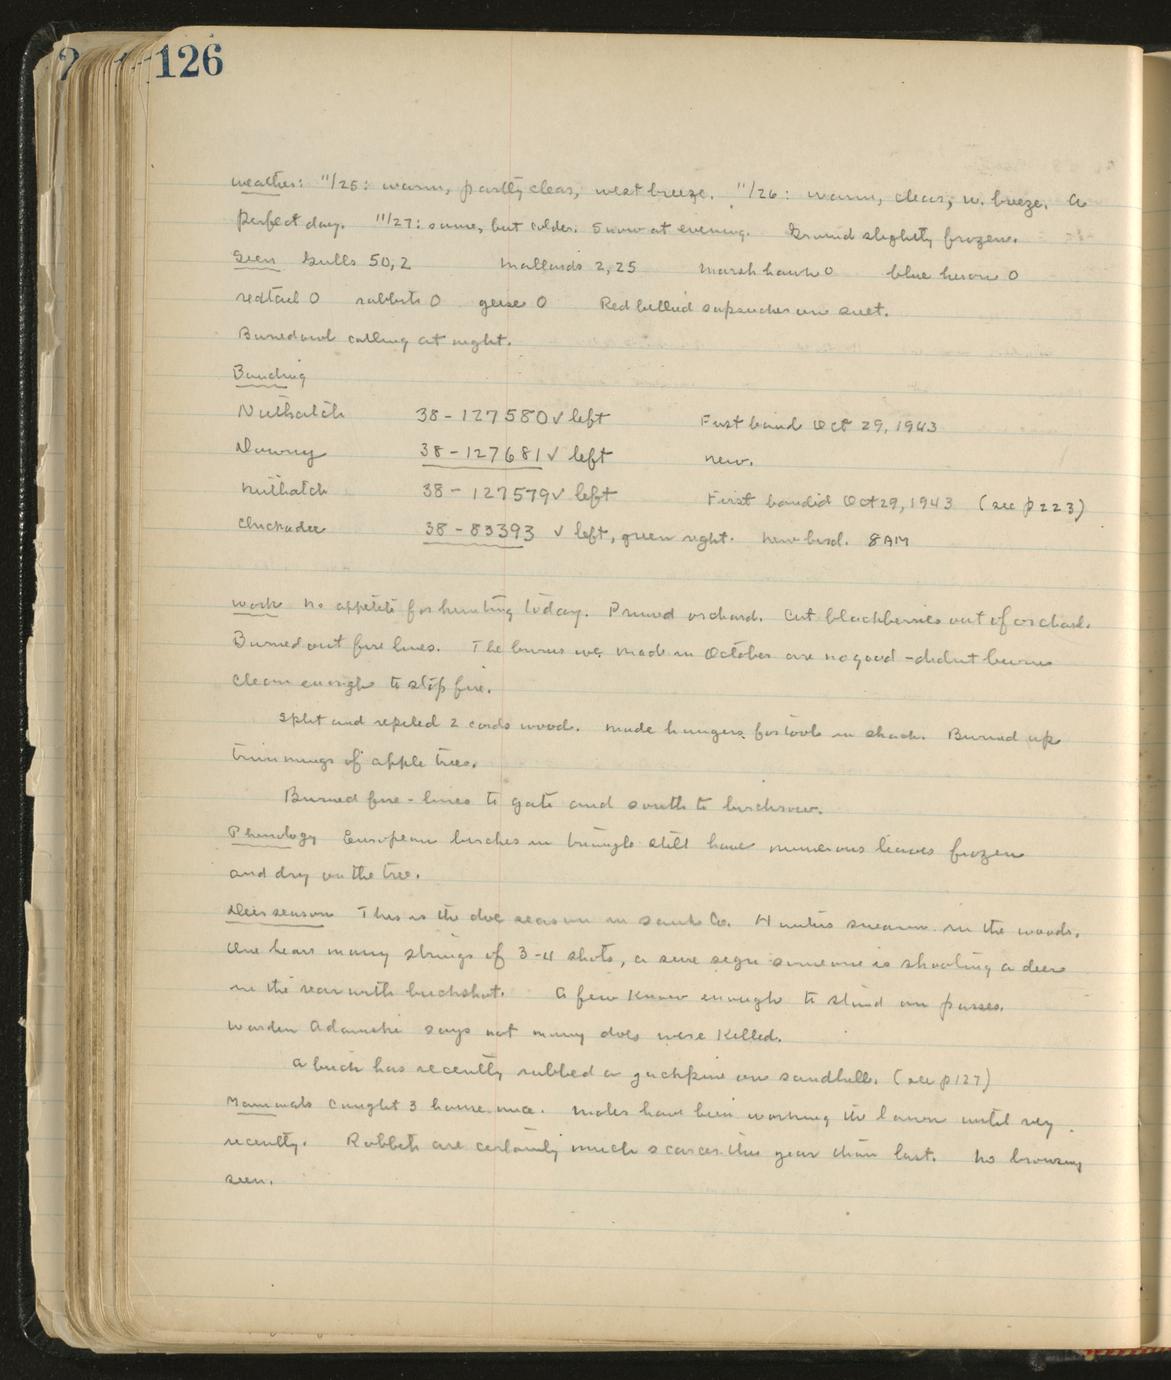 126
Weather: 11/25: warm, partly clear, west breeze. 11/26: warm, clear, w. breeze. A
perfect day. 11/27: same, but colder. Snow at evening. Ground slightly frozen.
Seen Gulls 50, 2 Mallards 2, 25 Marsh hawk 0 blue heron 0
redtail 0 rabbits 0 geese 0 Red bellied sapsucker on suet.
Barred owl calling at night.
Banding
Nuthatch 38-127580 ✓ left First band Oct 29, 1943
Downy 38-127681 ✓ left new.
Nuthatch 38-127579 ✓ left First banded Oct 29, 1943 (see p 223)
Chickadee 38-83393 ✓ left, green right. New bird. 8 AM
Work No appetite for hunting today. Pruned orchard. Cut blackberries out of orchard.
Burned out fire lines. The burns we made in October are no good - didnt burn
clean enough to stop fire.
Split and repiled 2 cords wood. Made hangers for tools in shack. Burned up
trimmings of apple trees.
Burned fire-lines to gate and south to birchrow.
Phenology European birches in triangle still have numerous leaves frozen
and dry on the tree.
Deer season This is the doe season in Sauk Co. Hunters swarm in the woods.
One hears many strings of 3-4 shots, a sure sign someone is shooting a deer
in the rear with buckshot. A few know enough to stand on passes.
Warden Adamski says not many does were killed.
A buck has recently rubbed a jackpine on sandhill. (see p 127)
Mammals Caught 3 house mice. Moles have been working the lawn until very
recently. Rabbits are certainly much scarcer this year than last. No browsing
seen.